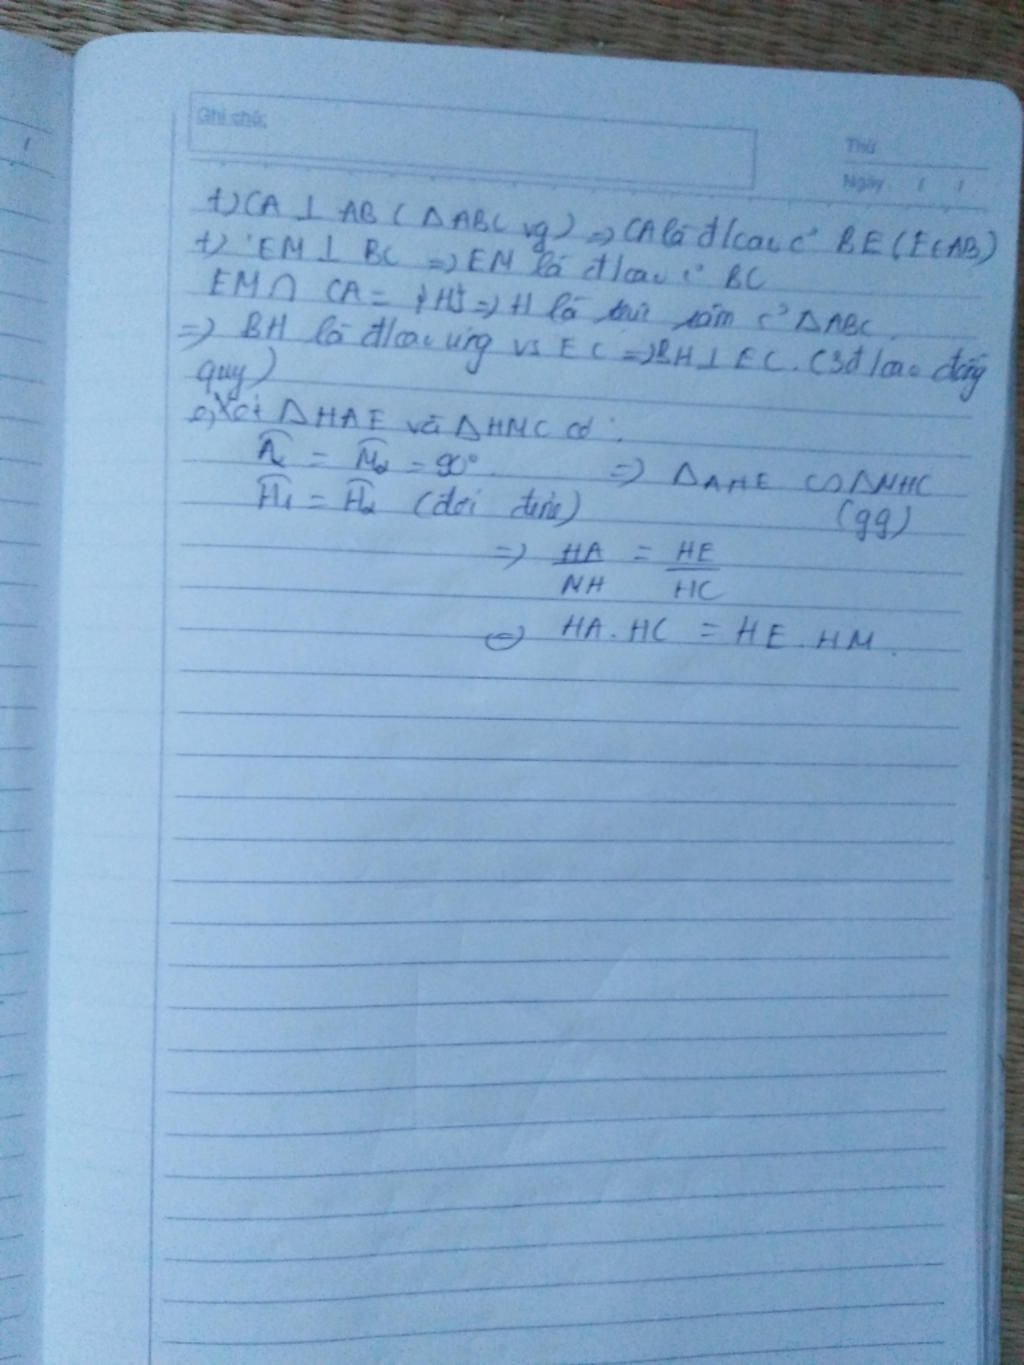 Ghi chú:
Thứ
Ngày / /
+) CA ⊥ AB ( △ABC vg) => CA là đ/cao c' BE (E∈AB)
+) EM ⊥ BC => EM là đ/cao c' BC
EM ∩ CA = {H} => H là tâm c' △ABC
=> BH là đ/cao ứng vs EC => BH ⊥ EC. (3 đ/cao đồng
quy)
c, Xét △HAE và △HMC có:
= M̂₂ = 90° => △AHE ∽ △MHC
Ĥ₁ = Ĥ₂ (đối đỉnh) (gg)
=> HA/MH = HE/HC
HA.HC = HE.HM.